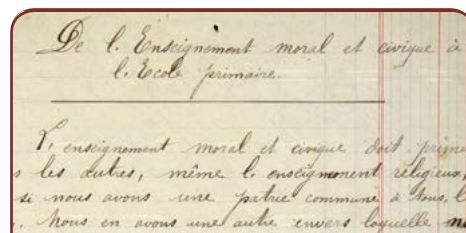 De l'Enseignement moral et civique à
l'Ecole primaire.
L'enseignement moral et civique doit prime
s les autres, même l'enseignement religieux,
si nous avons une patrie commune à tous, l
. Nous en avons une autre envers laquelle